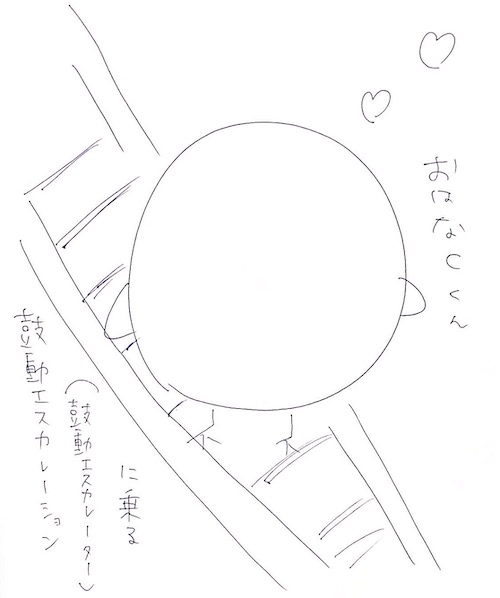 おはなCくん
に乗る
（鼓動エスカレーター）
鼓動エスカレーション